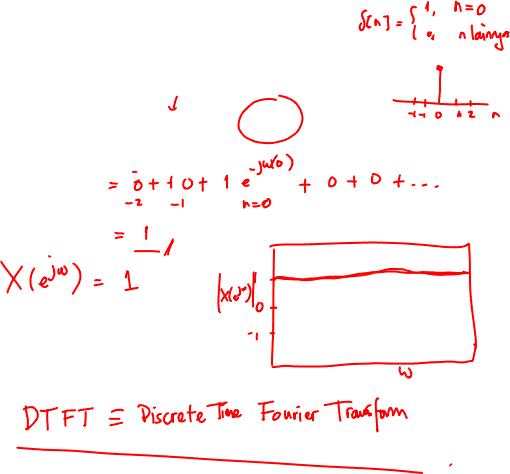 δ[n] = { 1, n=0
0, n lainnya
-2 -1 0 1 2 n
= 0 + 0 + 1 e^{-jω(0)} + 0 + 0 + ...
-2 -1 n=0
= 1
X(e^{jω}) = 1
|X(e^{jω})|
0
-1
ω
DTFT ≡ Discrete Time Fourier Transform